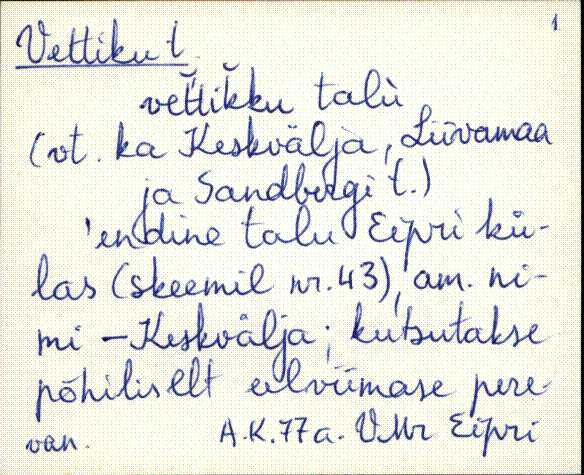 1
Vettiku t.
vet̆tik̆ku talù
(vt. ka Keskvälja, Liivamaa
ja Sandbergi t.)
'endine talu Eipri kü-
las (skeemil nr. 43), am. ni-
mi – Keskvälja; kutsutakse
põhiliselt eelviimase pere-
van. A.K. 77a. VMr Eipri